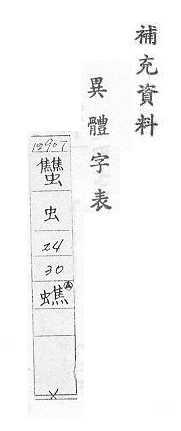 補充資料
異體字表
12907
虫
24
30
蟭